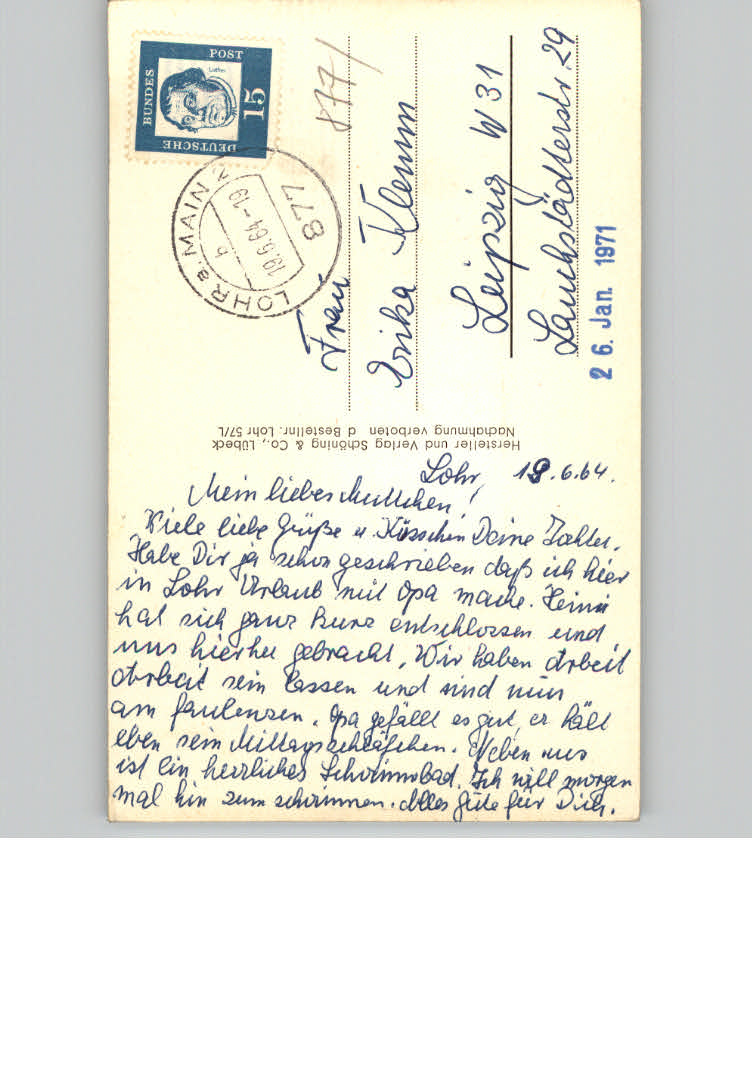 DEUTSCHE
BUNDES
POST
15
Luther
877/
LOHR a. MAIN
b
19.6.64-19
877
Frau
Erika Klemm
Leipzig W 31
Lauchstädterstr. 29
26. Jan. 1971
Hersteller und Verlag Schöning & Co., Lübeck
Nachahmung verboten d Bestellnr. Lohr 57/L
Lohr, 18.6.64.
Mein liebes Muttchen!
Viele liebe Grüße u. Küsschen Deine Tochter.
Habe Dir ja schon geschrieben daß ich hier
in Lohr Urlaub mit Opa mache. Heini
hat sich ganz kurz entschlossen und
uns hierher gebracht. Wir haben Arbeit
Arbeit sein lassen und sind nun
am faulenzen. Opa gefällt es gut, er hält
eben sein Mittagsschläfchen. Neben uns
ist ein herrliches Schwimmbad. Ich will morgen
mal hin zum schwimmen. Alles Gute für Dich.